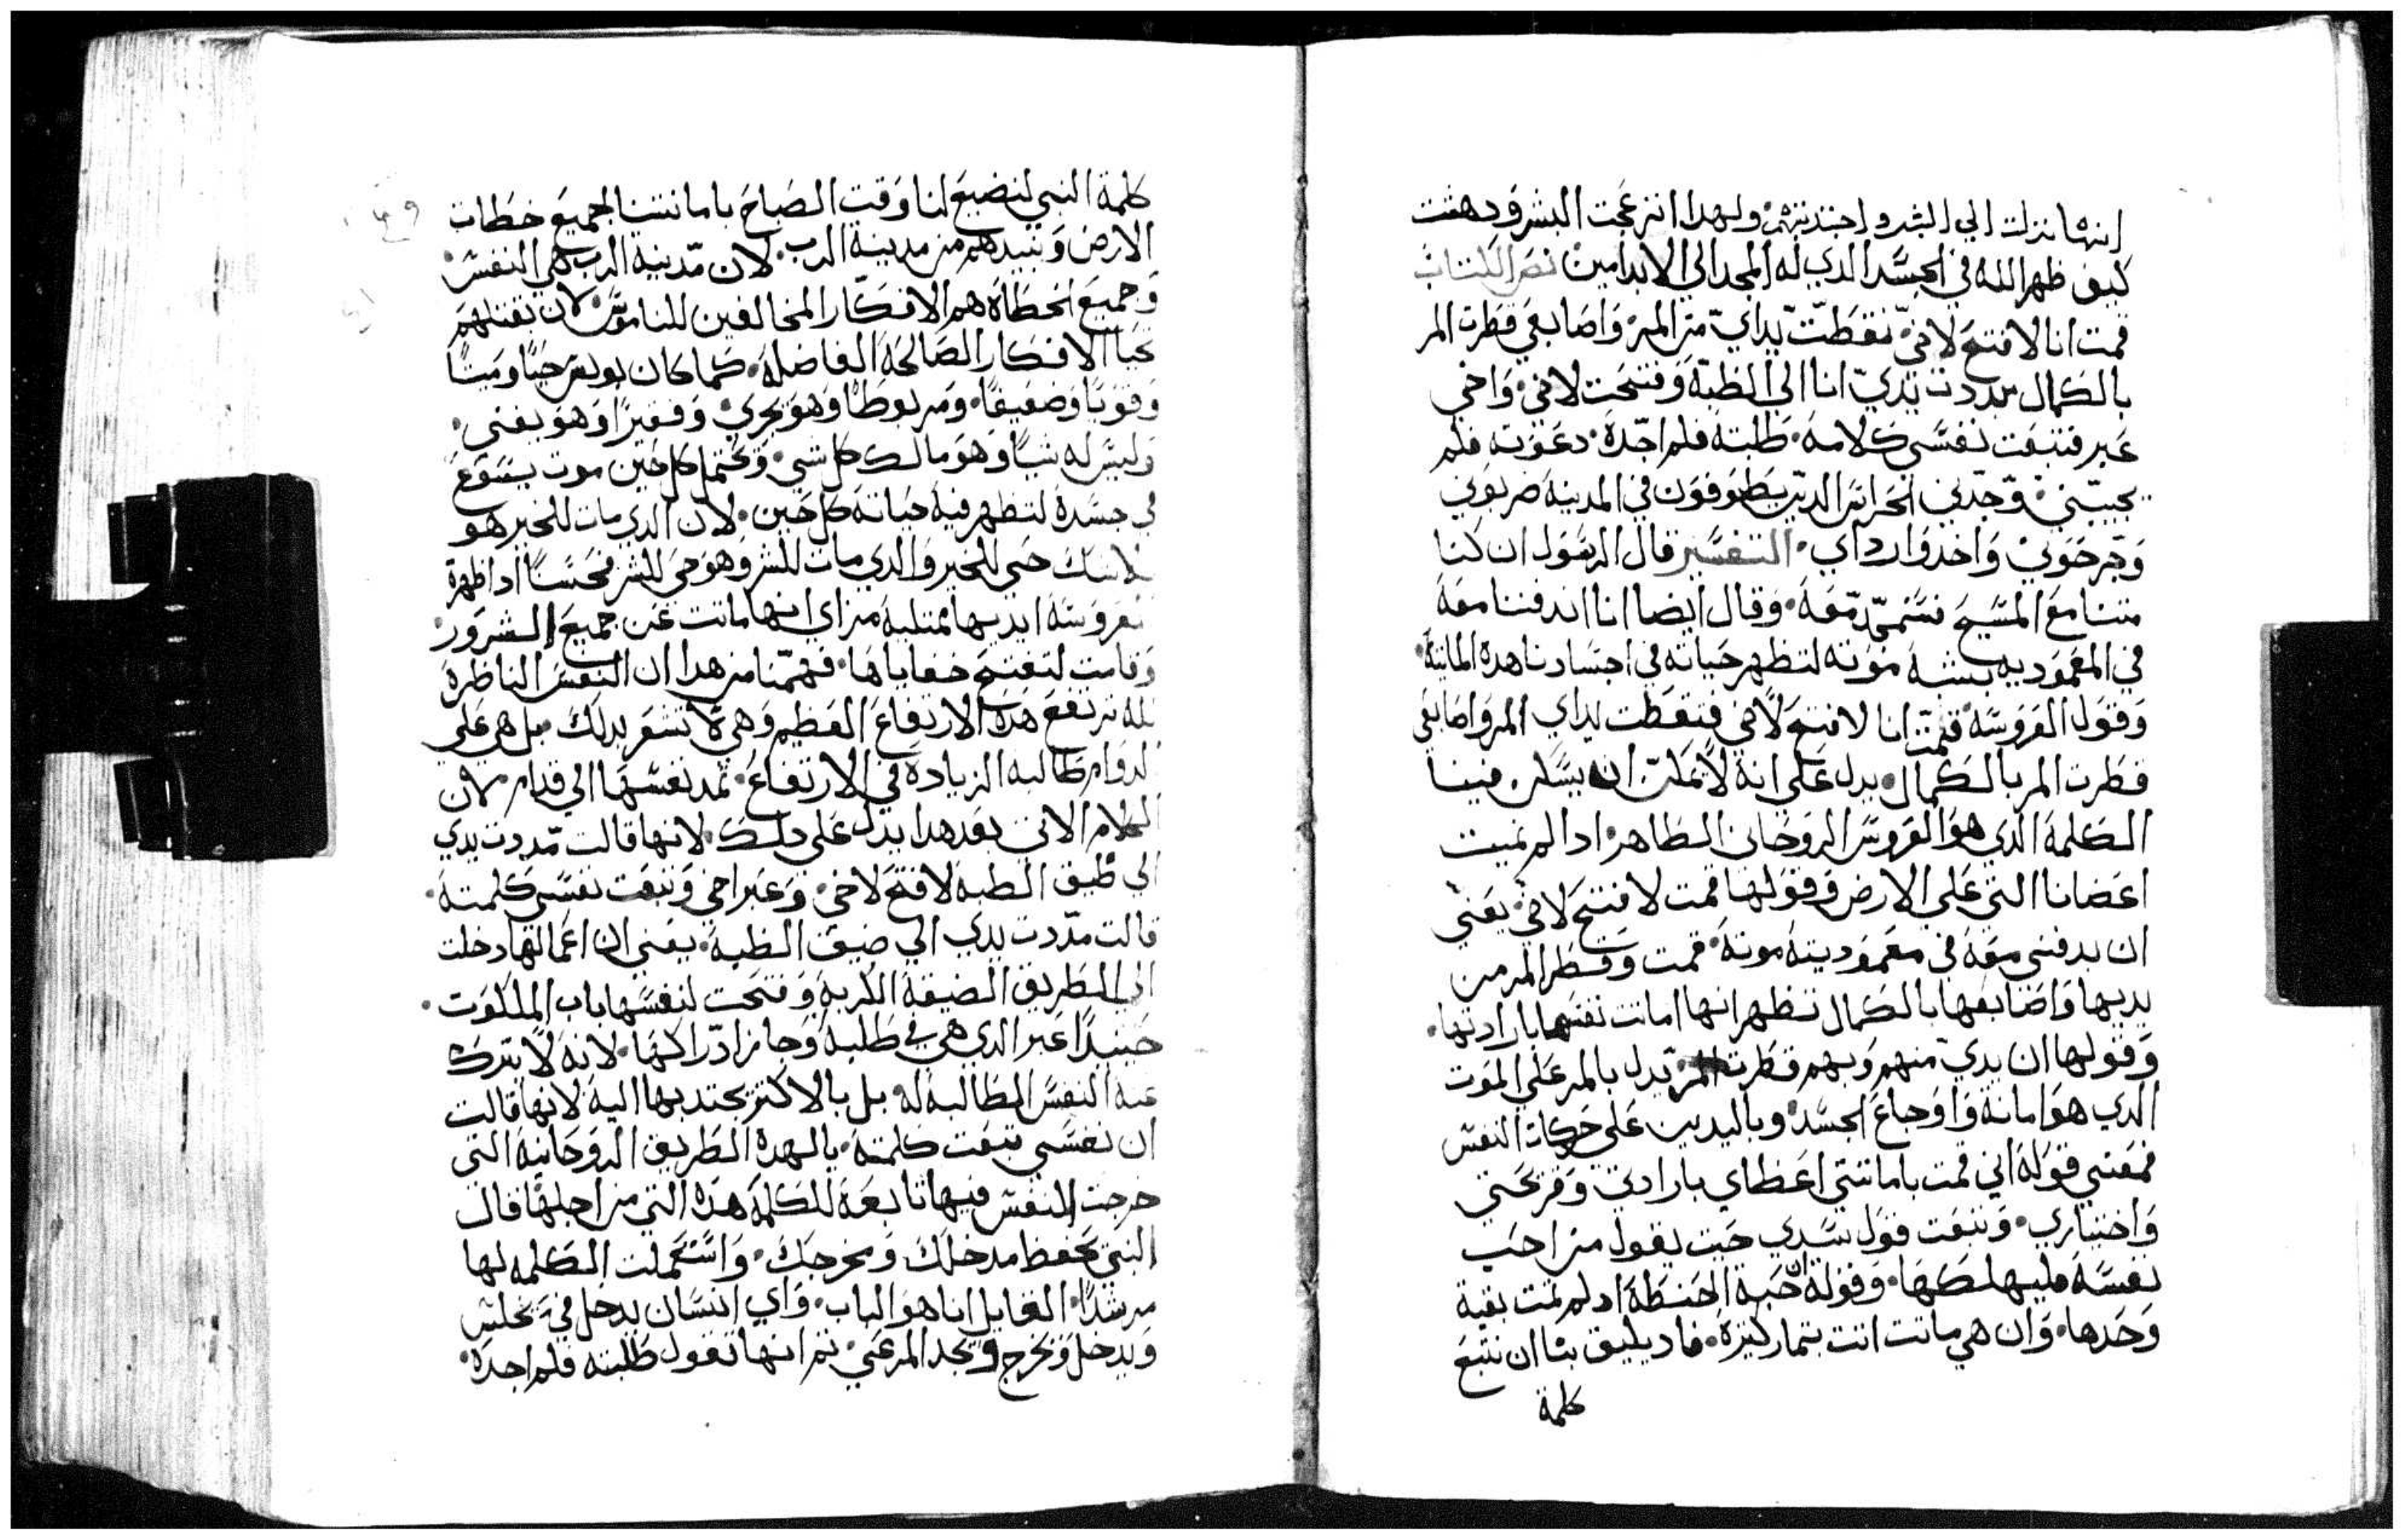 انها نزلت الي البشر واجتدبتهم ولهدا انزعجت البشر ودهشت
كيف ظهر الله في الجسد الدي له المجد الي الابد امين نص الكتاب
قمت انا لافتح لاخي نقطت يداي من المر واصابعي قطرت المر
بالكمال مددت يدي انا الي الطبة وفتحت لاخي واخي
عبر فتبعت نفسي كلامه طلبته فلم اجده دعوته فلم
يجيبني وجدني الحراس الدين يطوفون في المدينة ضربوني
وجرحوني واخدوا رداي التفسير قال الرسول ان كنا
متنا مع المسيح نستحد معه وقال ايضا انا اندفنا معه
في المعموديه بشبه موته لتظهر حياته في اجسادنا هده المايته
وقول العروسه قمت انا لافتح لاخي فنقطت يداي المر واصابعي
قطرت المر بالكمال يدل علي انه لا يمكن ان يسكن فينا
الكلمة الدي هو العروس الروحاني الطاهر ادا لم نميت
اعضانا التي علي الارض وقولها قمت لافتح لاخي يعني
ان يدفنني معه في معموديته موته قمت وقطر المر من
يديها واصابعها بالكمال تظهر انها اماتت نفسها بارادتها
وقولها ان يدي منهم وبهم قطرت المر يدل بالمر علي الموت
الدي هو اماته واوجاع الجسد وباليدين علي حركات النفس
فمعني قوله اني قمت باماتتي اعظاي بارادتي وفرحتي
واختياري وتبعت قول سيدي حيت يقول من احب
نفسه فليهلكها وقوله ان حبة الحنطة اد لم تمت بقية
وحدها وان هي ماتت اتت بتمار كتيرة فاد يليق بنا ان نتبع
كلمة
كلمة النبي لنضيع لنا وقت الصباح باماتتنا لجميع خطات
الارض ونبيدهم من مدينة الرب لان مدينة الرب هي النفس
وجميع الخطاه هم الافكار المخالفين للناموس لان بقتلهم
تحيا الافكار الصالحه الفاضله كما كان بولس حيا وميتا
وقويا وضعيفا ومربوطا وهو يجري وفقيرا وهو يغني
وليس له شيا وهو مالك كل شي ويحتمل كل حين موت يسوع
في جسده لتظهر فيه حياته كل حين لان الدي مات للخير هو
بلا شك حي للخير والدي مات للشر وهو حي للشر فحسنا اد اظهرة
العروسه ايديها ممتليه من اي انها ماتت عن جميع الشرور
وقامت لتفتح خفاياها ففهمنا من هدا ان النفس الناظرة
لله ترتفع هدا الارتفاع العظيم وهي لا تشعر بدلك بل هي علي
الدوام طالبه الزيادة في الارتفاع تمد نفسها الي قدام لان
الكلام الاتي بعد هدا يدل علي دلك لانها قالت مددت يدي
الي ظيق الطبه لافتح لاخي وعبر اخي وتبعت نفسي كلمته
قالت مددت يدي الي ضيق الطبه يعني ان اعمالها دخلت
الي الطريق الضيقة الكربه وفتحت لنفسها باب الملكوت
حينيدا عبر الدي هي في طلبه وجاز ادراكها لانه لا تترك
عنه النفس الطالبه له بل بالاكتر يجتدبها اليه لانها قالت
ان نفسي تبعت كلمته يالهدة الطريق الروحانية التي
خرجت النفس فيها تابعة للكلمة هده التي من اجلها قال
النبي يحفظ مدخلك ومخرجك واستعملت الكلمه لها
مرشدا القايل انا هو الباب واي انسان يدخل في يخلص
ويدخل ويخرج ويجد المرعي تم انها تقول طلبته فلم اجده